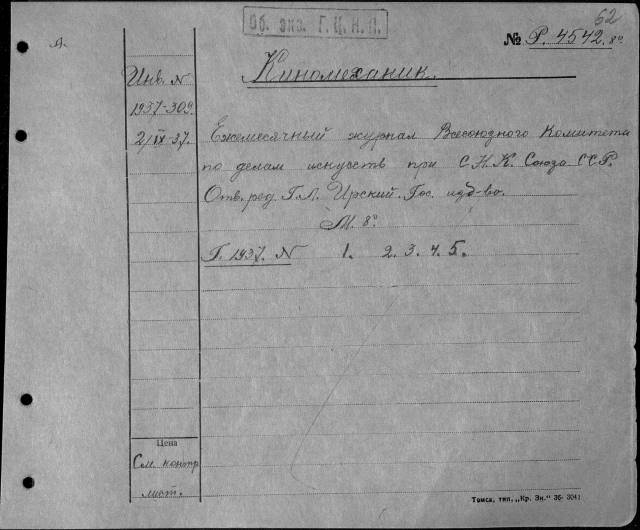 62
Об. экз. Г. Ц. К. П.
№ Р. 4542. 8°
А.
Инв. N
1937-309
2/IX-37.
Киномеханик.
Ежемесячный журнал Всесоюзного Комитета
по делам искусств при С.Н.К. Союза ССР.
Отв. ред. Г.Л. Ирский. Гос. изд-во.
М. 8°
Г. 1937. N 1. 2. 3. 4. 5.
Цена
См. контр
лист.
Томск, тип. „Кр. Зн." 36- 3041